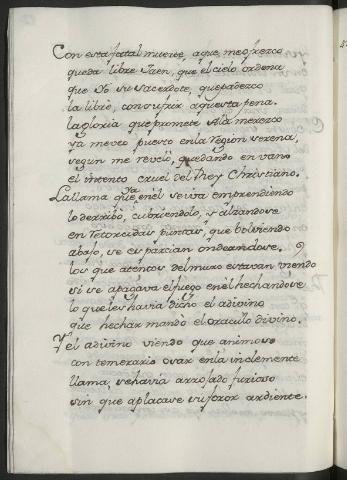 Con esta fatal muerte aque me ofrezco
queda libre Jaen, que el cielo ordena
que Yo su Sacerdote, que padezco
la libre, con sufrir aquesta pena.
la gloria que promete Ala merezco
ya me veo puesto en la Region serena,
segun me reveló, quedando en vano
el intento cruel del Rey Christiano.
La llama que ya en el se iva emprendiendo
lo derribó, cubriendolo, y alzandose
en retorcidas puntas, que bolviendo
abajo, se esparcian ondeandose.
los que atentos del muro estavan viendo
si se apagava el fuego en el hechandose
lo que les havia dicho el adivino
que hechar mandó el oraculo divino.
Y el adivino viendo que animoso
con temerario osar en la inclemente
llama, se havia arrojado furioso
sin que aplacase su furor ardiente.